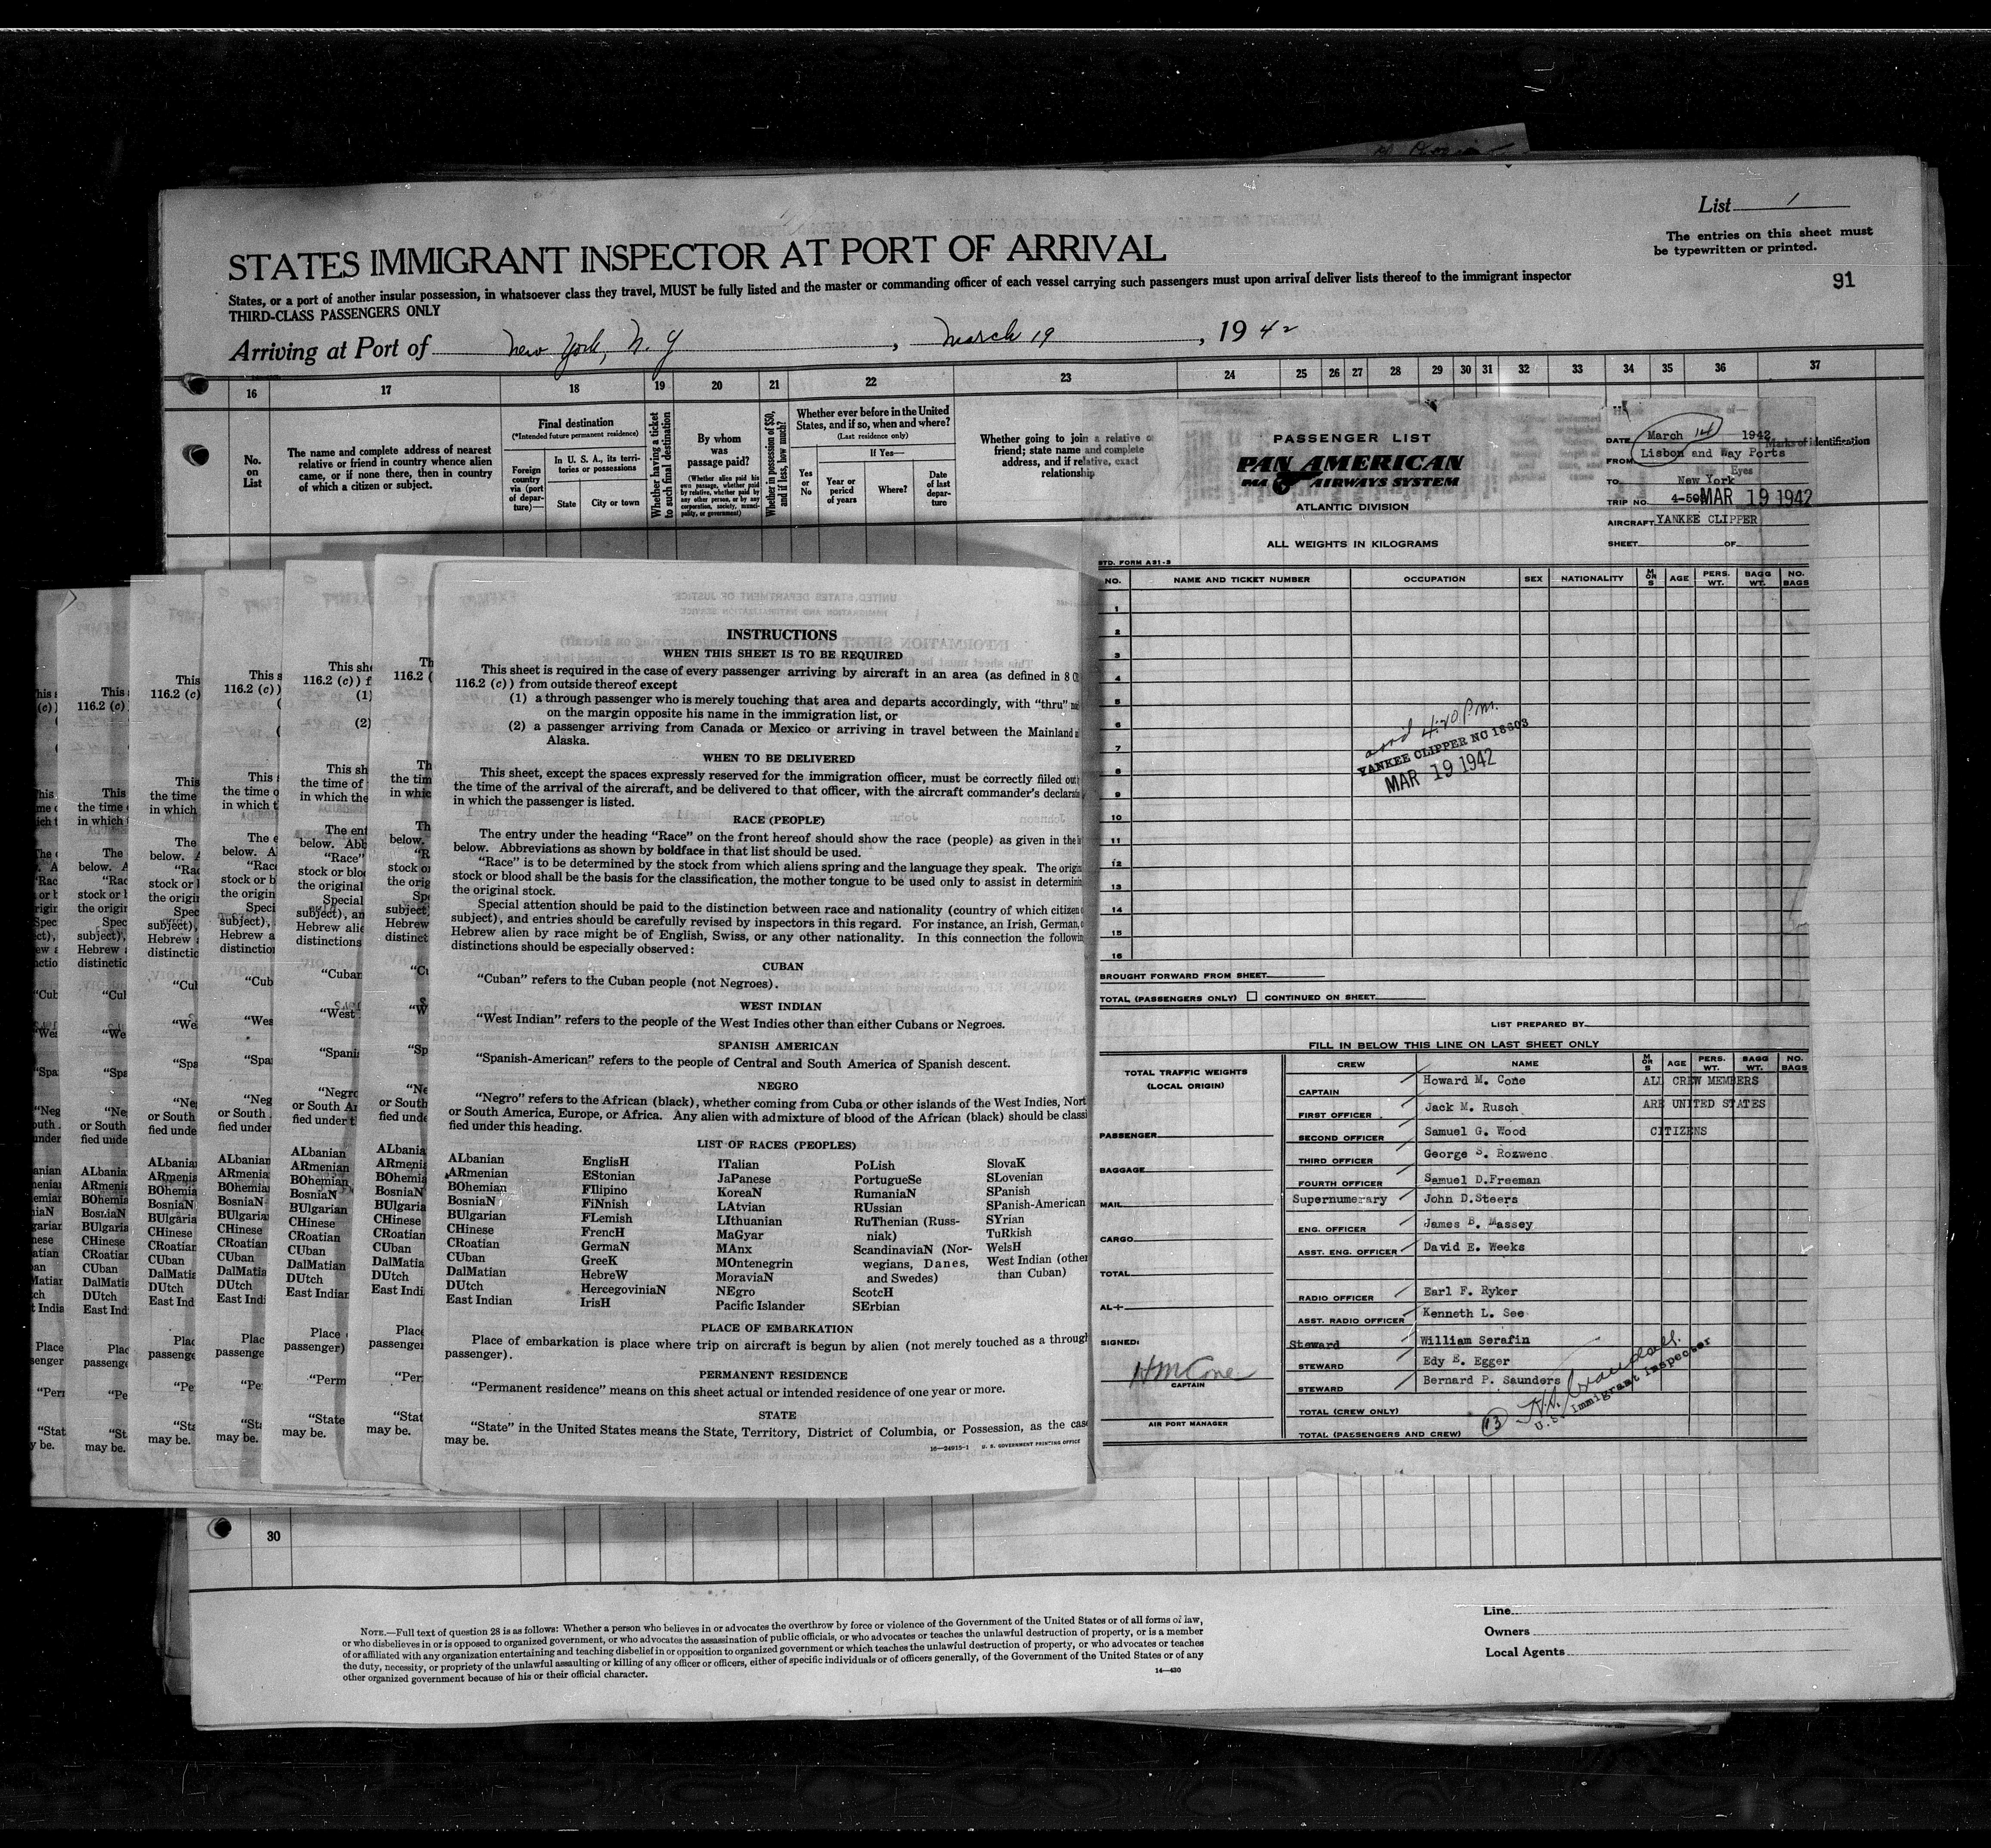 List 1
The entries on this sheet must
be typewritten or printed.
91
STATES IMMIGRANT INSPECTOR AT PORT OF ARRIVAL
States, or a port of another insular possession, in whatsoever class they travel, MUST be fully listed and the master or commanding officer of each vessel carrying such passengers must upon arrival deliver lists thereof to the immigrant inspector
THIRD-CLASS PASSENGERS ONLY
Arriving at Port of New York, N. Y, March 19, 1942
16 17 18 19 20 21 22 23 24 25 26 27 28 29 30 31 32 33 34 35 36 37
No.
on
List
The name and complete address of nearest
relative or friend in country whence alien
came, or if none there, then in country
of which a citizen or subject.
Final destination
(*Intended future permanent residence)
Foreign
country
via (port
of depar-
ture)—
In U. S. A., its terri-
tories or possessions
State
City or town
Whether having a ticket
to such final destination
By whom
was
passage paid?
(Whether alien paid his
own passage, whether paid
by relative, whether paid by
any other person, or by any
corporation, society, munici-
pality, or government)
Whether in possession of $50,
and if less, how much?
Whether ever before in the United
States, and if so, when and where?
(Last residence only)
Yes
or
No
If Yes—
Year or
period
of years
Where?
Date
of last
depar-
ture
Whether going to join a relative or
friend; state name and complete
address, and if relative, exact
relationship
Marks of identification
Eyes
INSTRUCTIONS
WHEN THIS SHEET IS TO BE REQUIRED
This sheet is required in the case of every passenger arriving by aircraft in an area (as defined in 8
116.2 (c)) from outside thereof except
(1) a through passenger who is merely touching that area and departs accordingly, with "thru"
on the margin opposite his name in the immigration list, or
(2) a passenger arriving from Canada or Mexico or arriving in travel between the Mainland
Alaska.
WHEN TO BE DELIVERED
This sheet, except the spaces expressly reserved for the immigration officer, must be correctly filled out
the time of the arrival of the aircraft, and be delivered to that officer, with the aircraft commander's
in which the passenger is listed.
RACE (PEOPLE)
The entry under the heading "Race" on the front hereof should show the race (people) as given in the
below. Abbreviations as shown by boldface in that list should be used.
"Race" is to be determined by the stock from which aliens spring and the language they speak. The
stock or blood shall be the basis for the classification, the mother tongue to be used only to assist in
the original stock.
Special attention should be paid to the distinction between race and nationality (country of which citizen
subject), and entries should be carefully revised by inspectors in this regard. For instance, an Irish, German,
Hebrew alien by race might be of English, Swiss, or any other nationality. In this connection the
distinctions should be especially observed:
CUBAN
"Cuban" refers to the Cuban people (not Negroes).
WEST INDIAN
"West Indian" refers to the people of the West Indies other than either Cubans or Negroes.
SPANISH AMERICAN
"Spanish-American" refers to the people of Central and South America of Spanish descent.
NEGRO
"Negro" refers to the African (black), whether coming from Cuba or other islands of the West Indies, Nort
or South America, Europe, or Africa. Any alien with admixture of blood of the African (black) should be classi
fied under this heading.
LIST OF RACES (PEOPLES)
ALbanian
ARmenian
BOhemian
BosniaN
BUlgarian
CHinese
CRoatian
CUban
DalMatian
DUtch
East Indian
EnglisH
EStonian
FIlipino
FiNnish
FLemish
FrencH
GermaN
GreeK
HebreW
HercegoviniaN
IrisH
ITalian
JaPanese
KoreaN
LAtvian
LIthuanian
MaGyar
MAnx
MOntenegrin
MoraviaN
NEgro
Pacific Islander
PoLish
PortugueSe
RumaniaN
RUssian
RuThenian (Russ-
niak)
ScandinaviaN (Nor-
wegians, Danes,
and Swedes)
ScotcH
SErbian
SlovaK
SLovenian
SPanish
SPanish-American
SYrian
TuRkish
WelsH
West Indian (other
than Cuban)
PLACE OF EMBARKATION
Place of embarkation is place where trip on aircraft is begun by alien (not merely touched as a through
passenger).
PERMANENT RESIDENCE
"Permanent residence" means on this sheet actual or intended residence of one year or more.
STATE
"State" in the United States means the State, Territory, District of Columbia, or Possession, as the case
may be.
16—24915-1 U. S. GOVERNMENT PRINTING OFFICE
PASSENGER LIST
PAN AMERICAN
PAA AIRWAYS SYSTEM
ATLANTIC DIVISION
ALL WEIGHTS IN KILOGRAMS
DATE March 14 1942
FROM Lisbon and Way Ports
TO New York
TRIP NO. MAR 19 1942
AIRCRAFT YANKEE CLIPPER
SHEET OF
STD. FORM A31-3
NO. NAME AND TICKET NUMBER OCCUPATION SEX NATIONALITY M OR S AGE PERS. WT. BAGG WT. NO. BAGS
1
2
3
4
5
6
7
8
9
10
11
12
13
14
15
16
arrd 4:20 P.m.
YANKEE CLIPPER NC 18603
MAR 19 1942
BROUGHT FORWARD FROM SHEET
TOTAL (PASSENGERS ONLY) CONTINUED ON SHEET
LIST PREPARED BY
FILL IN BELOW THIS LINE ON LAST SHEET ONLY
TOTAL TRAFFIC WEIGHTS
(LOCAL ORIGIN)
PASSENGER
BAGGAGE
MAIL
CARGO
TOTAL
AL+
SIGNED:
HM Cone
CAPTAIN
AIR PORT MANAGER
CREW NAME M OR S AGE PERS. WT. BAGG WT. NO. BAGS
CAPTAIN Howard M. Cone ALL CREW MEMBERS
FIRST OFFICER Jack M. Rusch ARE UNITED STATES
SECOND OFFICER Samuel G. Wood CITIZENS
THIRD OFFICER George S. Rozwenc
FOURTH OFFICER Samuel D.Freeman
Supernumerary John D.Steers
ENG. OFFICER James B. Massey
ASST. ENG. OFFICER David E. Weeks
RADIO OFFICER Earl F. Ryker
ASST. RADIO OFFICER Kenneth L. See
Steward William Serafin
STEWARD Edy E. Egger
STEWARD Bernard P. Saunders
TOTAL (CREW ONLY)
TOTAL (PASSENGERS AND CREW) 13
U. S. Immigrant Inspector
30
NOTE.—Full text of question 28 is as follows: Whether a person who believes in or advocates the overthrow by force or violence of the Government of the United States or of all forms of law,
or who disbelieves in or is opposed to organized government, or who advocates the assassination of public officials, or who advocates or teaches the unlawful destruction of property, or is a member
of or affiliated with any organization entertaining and teaching disbelief in or opposition to organized government or which teaches the unlawful destruction of property, or who advocates or teaches
the duty, necessity, or propriety of the unlawful assaulting or killing of any officer or officers, either of specific individuals or of officers generally, of the Government of the United States or of any
other organized government because of his or their official character.
14—430
Line
Owners
Local Agents